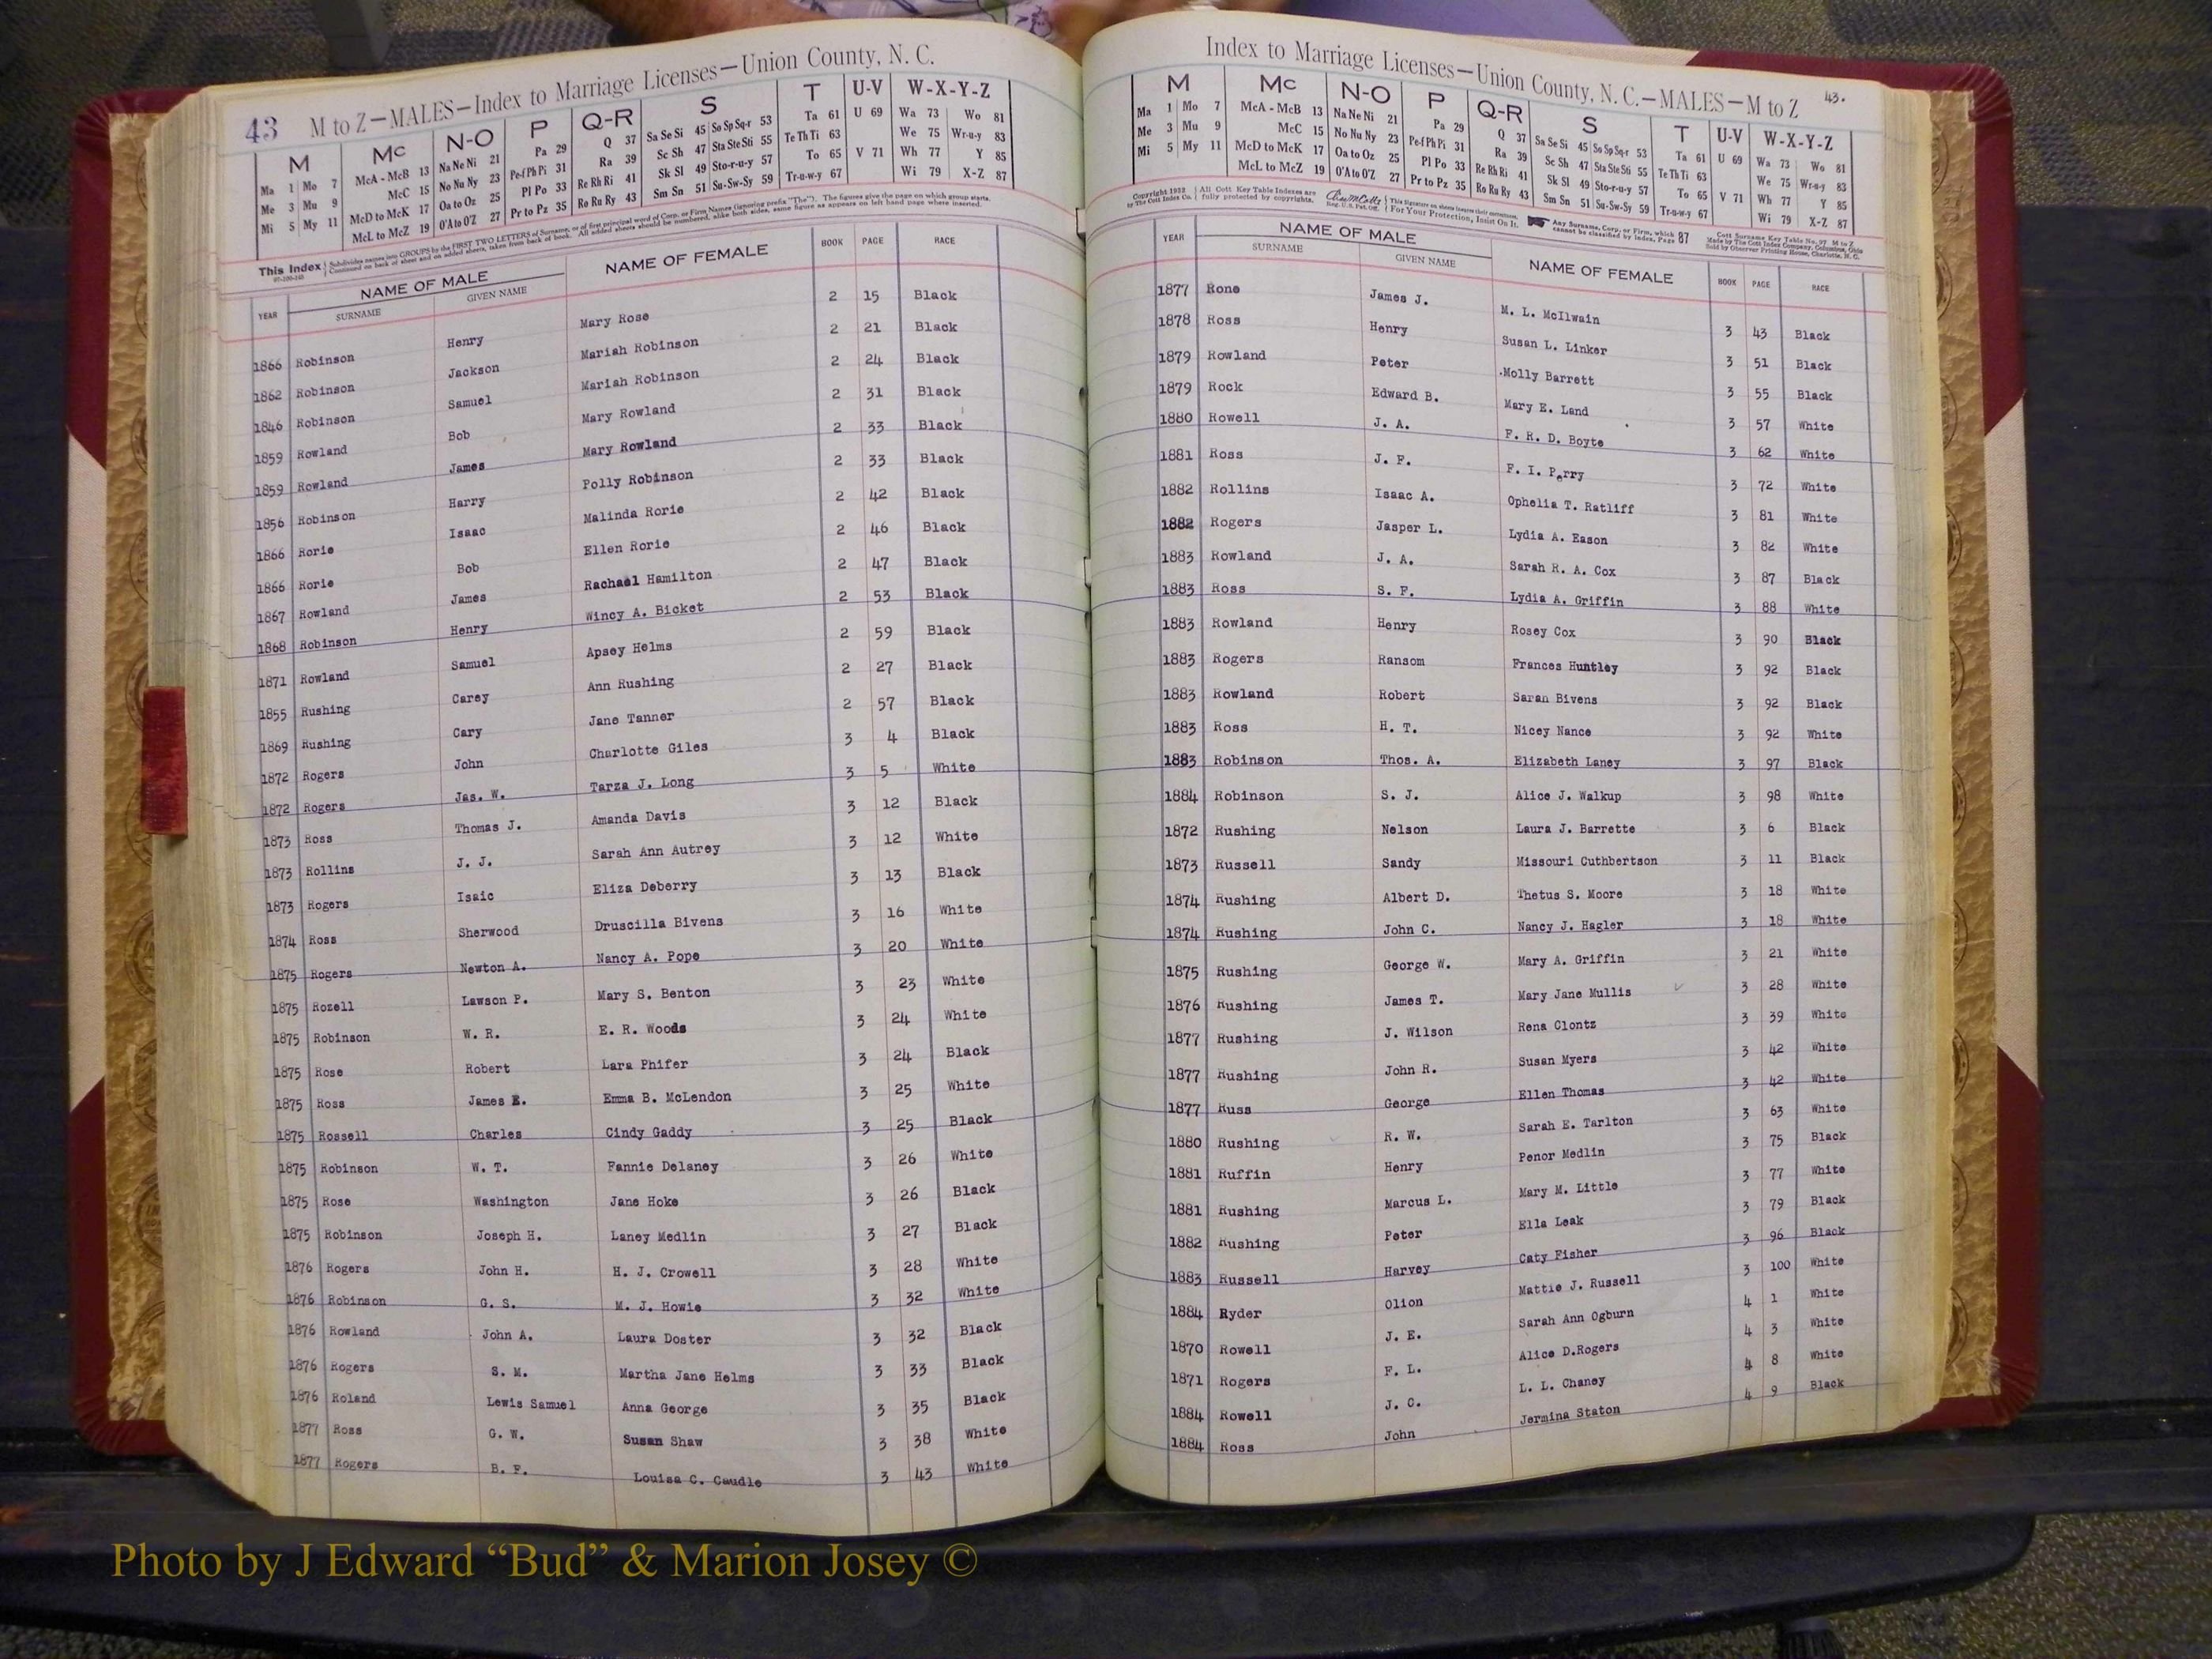 43 M to Z—MALES—Index to Marriage Licenses—Union County, N. C.
M Mc N-O P Q-R S T U-V W-X-Y-Z
Ma 1 Mo 7 McA - McB 13 Na Ne Ni 21 Pa 29 Q 37 Sa Se Si 45 So Sp Sq-r 53 Ta 61 U 69 Wa 73 Wo 81
Me 3 Mu 9 McC 15 No Nu Ny 23 Pe-f Ph Pi 31 Ra 39 Sc Sh 47 Sta Ste Sti 55 Te Th Ti 63 We 75 Wr-u-y 83
Mi 5 My 11 McD to McK 17 Oa to Oz 25 Pl Po 33 Re Rh Ri 41 Sk Sl 49 Sto-r-u-y 57 To 65 V 71 Wh 77 Y 85
McL to McZ 19 O'A to O'Z 27 Pr to Pz 35 Ro Ru Ry 43 Sm Sn 51 Su-Sw-Sy 59 Tr-u-w-y 67 Wi 79 X-Z 87
This Index Subdivides names into GROUPS by the FIRST TWO LETTERS of Surname, or of first principal word of Corp. or Firm Names (ignoring prefix "The"). The figures give the page on which group starts.
Continued on back of sheet and on added sheets, taken from back of book. All added sheets should be numbered, alike both sides, same figure as appears on left hand page where inserted.
YEAR NAME OF MALE NAME OF FEMALE BOOK PAGE RACE
SURNAME GIVEN NAME
1866 Robinson Henry Mary Rose 2 15 Black
1862 Robinson Jackson Mariah Robinson 2 21 Black
1846 Robinson Samuel Mariah Robinson 2 24 Black
1859 Rowland Bob Mary Rowland 2 31 Black
1859 Rowland James Mary Rowland 2 33 Black
1856 Robinson Harry Polly Robinson 2 33 Black
1866 Rorie Isaac Malinda Rorie 2 42 Black
1866 Rorie Bob Ellen Rorie 2 46 Black
1867 Rowland James Rachael Hamilton 2 47 Black
1868 Robinson Henry Wincy A. Bicket 2 53 Black
1871 Rowland Samuel Apsey Helms 2 59 Black
1855 Rushing Carey Ann Rushing 2 27 Black
1869 Rushing Cary Jane Tanner 2 57 Black
1872 Rogers John Charlotte Giles 3 4 Black
1872 Rogers Jas. W. Tarza J. Long 3 5 White
1873 Ross Thomas J. Amanda Davis 3 12 Black
1873 Rollins J. J. Sarah Ann Autrey 3 12 White
1873 Rogers Isaic Eliza Deberry 3 13 Black
1874 Ross Sherwood Druscilla Bivens 3 16 White
1875 Rogers Newton A. Nancy A. Pope 3 20 White
1875 Rozell Lawson P. Mary S. Benton 3 23 White
1875 Robinson W. R. E. R. Woods 3 24 White
1875 Rose Robert Lara Phifer 3 24 Black
1875 Ross James E. Emma B. McLendon 3 25 White
1875 Rossell Charles Cindy Gaddy 3 25 Black
1875 Robinson W. T. Fannie Delaney 3 26 White
1875 Rose Washington Jane Hoke 3 26 Black
1875 Robinson Joseph H. Laney Medlin 3 27 Black
1876 Rogers John H. H. J. Crowell 3 28 White
1876 Robinson G. S. M. J. Howie 3 32 White
1876 Rowland John A. Laura Doster 3 32 Black
1876 Rogers S. M. Martha Jane Helms 3 33 Black
1876 Roland Lewis Samuel Anna George 3 35 Black
1877 Ross G. W. Susan Shaw 3 38 White
1877 Rogers B. F. Louisa C. Caudle 3 43 White
Index to Marriage Licenses—Union County, N. C.—MALES—M to Z 43.
M Mc N-O P Q-R S T U-V W-X-Y-Z
Ma 1 Mo 7 McA - McB 13 Na Ne Ni 21 Pa 29 Q 37 Sa Se Si 45 So Sp Sq-r 53 Ta 61 U 69 Wa 73 Wo 81
Me 3 Mu 9 McC 15 No Nu Ny 23 Pe-f Ph Pi 31 Ra 39 Sc Sh 47 Sta Ste Sti 55 Te Th Ti 63 We 75 Wr-u-y 83
Mi 5 My 11 McD to McK 17 Oa to Oz 25 Pl Po 33 Re Rh Ri 41 Sk Sl 49 Sto-r-u-y 57 To 65 V 71 Wh 77 Y 85
McL to McZ 19 O'A to O'Z 27 Pr to Pz 35 Ro Ru Ry 43 Sm Sn 51 Su-Sw-Sy 59 Tr-u-w-y 67 Wi 79 X-Z 87
Copyright 1932 by The Cott Index Co. All Cott Key Table Indexes are fully protected by copyrights. For Your Protection, Insist On It. Any Surname, Corp. or Firm, which cannot be classified by Index, Page 87
YEAR NAME OF MALE NAME OF FEMALE BOOK PAGE RACE
SURNAME GIVEN NAME
1877 Rone James J. M. L. McIlwain 3 43 Black
1878 Ross Henry Susan L. Linker 3 51 Black
1879 Rowland Peter Molly Barrett 3 55 Black
1879 Rock Edward B. Mary E. Land 3 57 White
1880 Rowell J. A. F. R. D. Boyte 3 62 White
1881 Ross J. F. F. I. Perry 3 72 White
1882 Rollins Isaac A. Ophelia T. Ratliff 3 81 White
1882 Rogers Jasper L. Lydia A. Eason 3 82 White
1883 Rowland J. A. Sarah R. A. Cox 3 87 Black
1883 Ross S. F. Lydia A. Griffin 3 88 White
1883 Rowland Henry Rosey Cox 3 90 Black
1883 Rogers Ransom Frances Huntley 3 92 Black
1883 Rowland Robert Saran Bivens 3 92 Black
1883 Ross H. T. Nicey Nance 3 92 White
1883 Robinson Thos. A. Elizabeth Laney 3 97 Black
1884 Robinson S. J. Alice J. Walkup 3 98 White
1872 Rushing Nelson Laura J. Barrette 3 6 Black
1873 Russell Sandy Missouri Cuthbertson 3 11 Black
1874 Rushing Albert D. Thetus S. Moore 3 18 White
1874 Rushing John C. Nancy J. Hagler 3 18 White
1875 Rushing George W. Mary A. Griffin 3 21 White
1876 Rushing James T. Mary Jane Mullis 3 28 White
1877 Rushing J. Wilson Rena Clontz 3 39 White
1877 Rushing John R. Susan Myers 3 42 White
1877 Russ George Ellen Thomas 3 42 White
1880 Rushing R. W. Sarah E. Tarlton 3 63 White
1881 Ruffin Henry Penor Medlin 3 75 Black
1881 Rushing Marcus L. Mary M. Little 3 77 White
1882 Rushing Peter Ella Leak 3 79 Black
1883 Russell Harvey Caty Fisher 3 96 Black
1884 Ryder Olion Mattie J. Russell 3 100 White
1870 Rowell J. E. Sarah Ann Ogburn 4 1 White
1871 Rogers F. L. Alice D.Rogers 4 3 White
1884 Rowell J. C. L. L. Chaney 4 8 White
1884 Ross John Jermina Staton 4 9 Black
Photo by J Edward “Bud” & Marion Josey ©